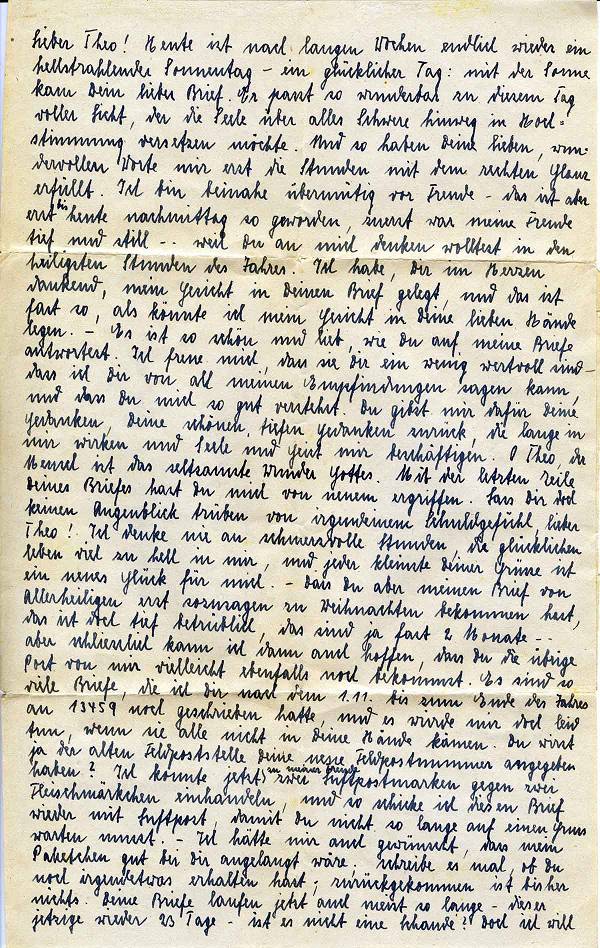 Lieber Theo! Heute ist nach langen Wochen endlich wieder ein
hellstrahlender Sonnentag – ein glücklicher Tag: mit der Sonne
kam Dein lieber Brief. Er passt so wunderbar zu diesem Tag
voller Licht, der die Seele über alles Schwere hinweg in Hoch=
stimmung versetzen möchte. Und so haben Deine lieben, wun-
dervollen Worte mir erst die Stunden mit dem rechten Glanz
erfüllt. Ich bin beinahe übermütig vor Freude – das ist aber
erst bis heute nachmittag so geworden, zuerst war meine Freude
tief und still -- weil Du an mich denken wolltest in den
heiligsten Stunden des Jahres. Ich habe, Dir im Herzen
dankend, mein Gesicht in Deinen Brief gelegt, und das ist
fast so, als könnte ich mein Gesicht in Deine lieben Hände
legen. – Es ist so schön und lieb, wie Du auf meine Briefe
antwortest. Ich freue mich, dass sie Dir ein wenig wertvoll sind –
dass ich Dir von all meinen Empfindungen sagen kann,
und dass Du mich so gut verstehst. Du gibst mir dafür Deine
Gedanken, Deine schönen, tiefen Gedanken zurück, die lange in
mir wirken und Seele und Geist mir beschäftigen. O Theo, der
Mensch ist das seltsamste Wunder Gottes. Mit der letzten Zeile
Deines Briefes hast Du mich von neuem ergriffen. Lass Dir doch
keinen Augenblick trüben von irgendeinem Schuldgefühl, lieber
Theo! Ich denke nie an schmerzvolle Stunden, die glücklichen
leben viel zu hell in mir, und jeder kleinste Deiner Grüsse ist
ein neues Glück für mich. – Dass Du aber meinen Brief von
Allerheiligen erst sozusagen zu Weihnachten bekommen hast,
das ist doch tief betrüblich, das sind ja fast 2 Monate --
aber schliesslich kann ich dann auch hoffen, dass Du die übrige
Post von mir vielleicht ebenfalls noch bekommst. Es sind so
viele Briefe, die ich Dir nach dem 1.11. bis zum Ende des Jahres
an 13459 noch geschrieben hatte, und es würde mir doch leid
tun, wenn sie alle nicht in Deine Hände kämen. Du wirst
ja der alten Feldpoststelle Deine neue Feldpostnummer angegeben
haben? Ich konnte jetzt zu meiner Freude zwei Luftpostmarken gegen zwei
Fleischmärkchen einhandeln, und so schicke ich diesen Brief
wieder mit Luftpost, damit Du nicht so lange auf einen Gruss
warten musst. – Ich hätte mir auch gewünscht, dass mein
Paketchen gut bei Dir angelangt wäre; schreibe es mal, ob Du
noch irgendetwas erhalten hast; zurückgekommen ist bisher
nichts. Deine Briefe laufen jetzt auch meist so lange – dieser
jetzige wieder 23 Tage – ist es nicht eine Schande? Doch ich will